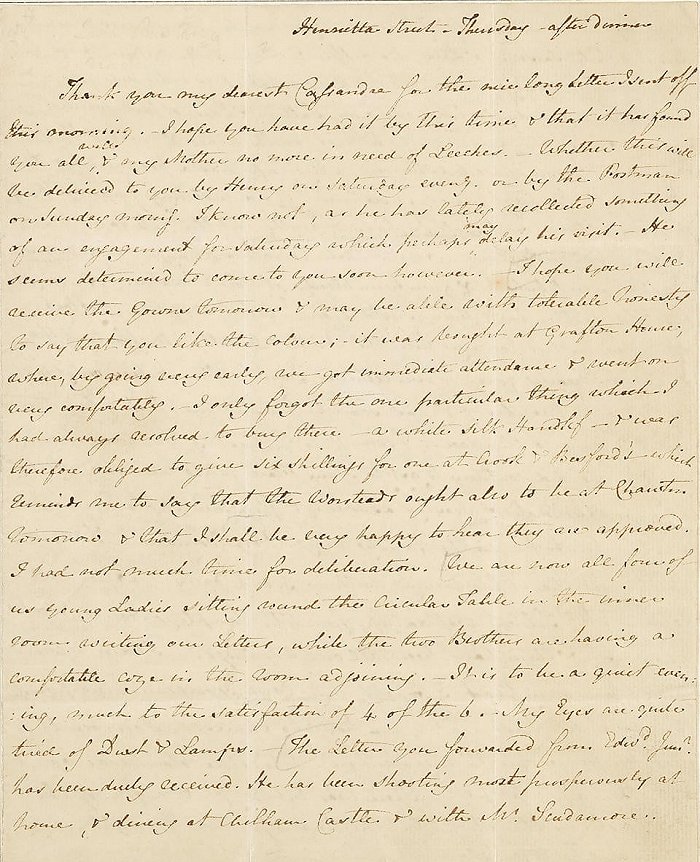 Henrietta Street - Thursday - after dinner
Thank you my dearest Cassandra for the nice long Letter I sent off
this morning. - I hope you have had it by this time & that it has found
you all well, & my Mother no more in need of Leeches. - Whether this will
be delivered to you by Henry on Saturday eveng. or by the Postman
on Sunday morng. I know not, as he has lately recollected something
of an engagement for Saturday which perhaps may delay his visit. - He
seems determined to come to you soon however. - I hope you will
receive the Gowns tomorrow & may be able with tolerable honesty
to say that you like the Colour; - it was bought at Grafton House,
where, by going very early, we got immediate attendance & went on
very comfortably. - I only forgot the one particular thing which I
had always resolved to buy there - a white silk Handkf - & was
therefore obliged to give six shillings for one at Crook & Besford's - which
reminds me to say that the Worsteads ought also to be at Chawton
tomorrow & that I shall be very happy to hear they are approved.
I had not much time for deliberation. We are now all four of
us young Ladies sitting round the Circular Table in the inner
room writing our Letters, while the two Brothers are having a
comfortable coze in the room adjoining. - It is to be a quiet even:
:ing, much to the satisfaction of 4 of the 6. - My Eyes are quite
tired of Dust & Lamps. - The Letter you forwarded from Edwd. Junr.
has been duly received. He has been shooting most prosperously at
home, & dining at Chilham Castle & with Mr. Scudamore.